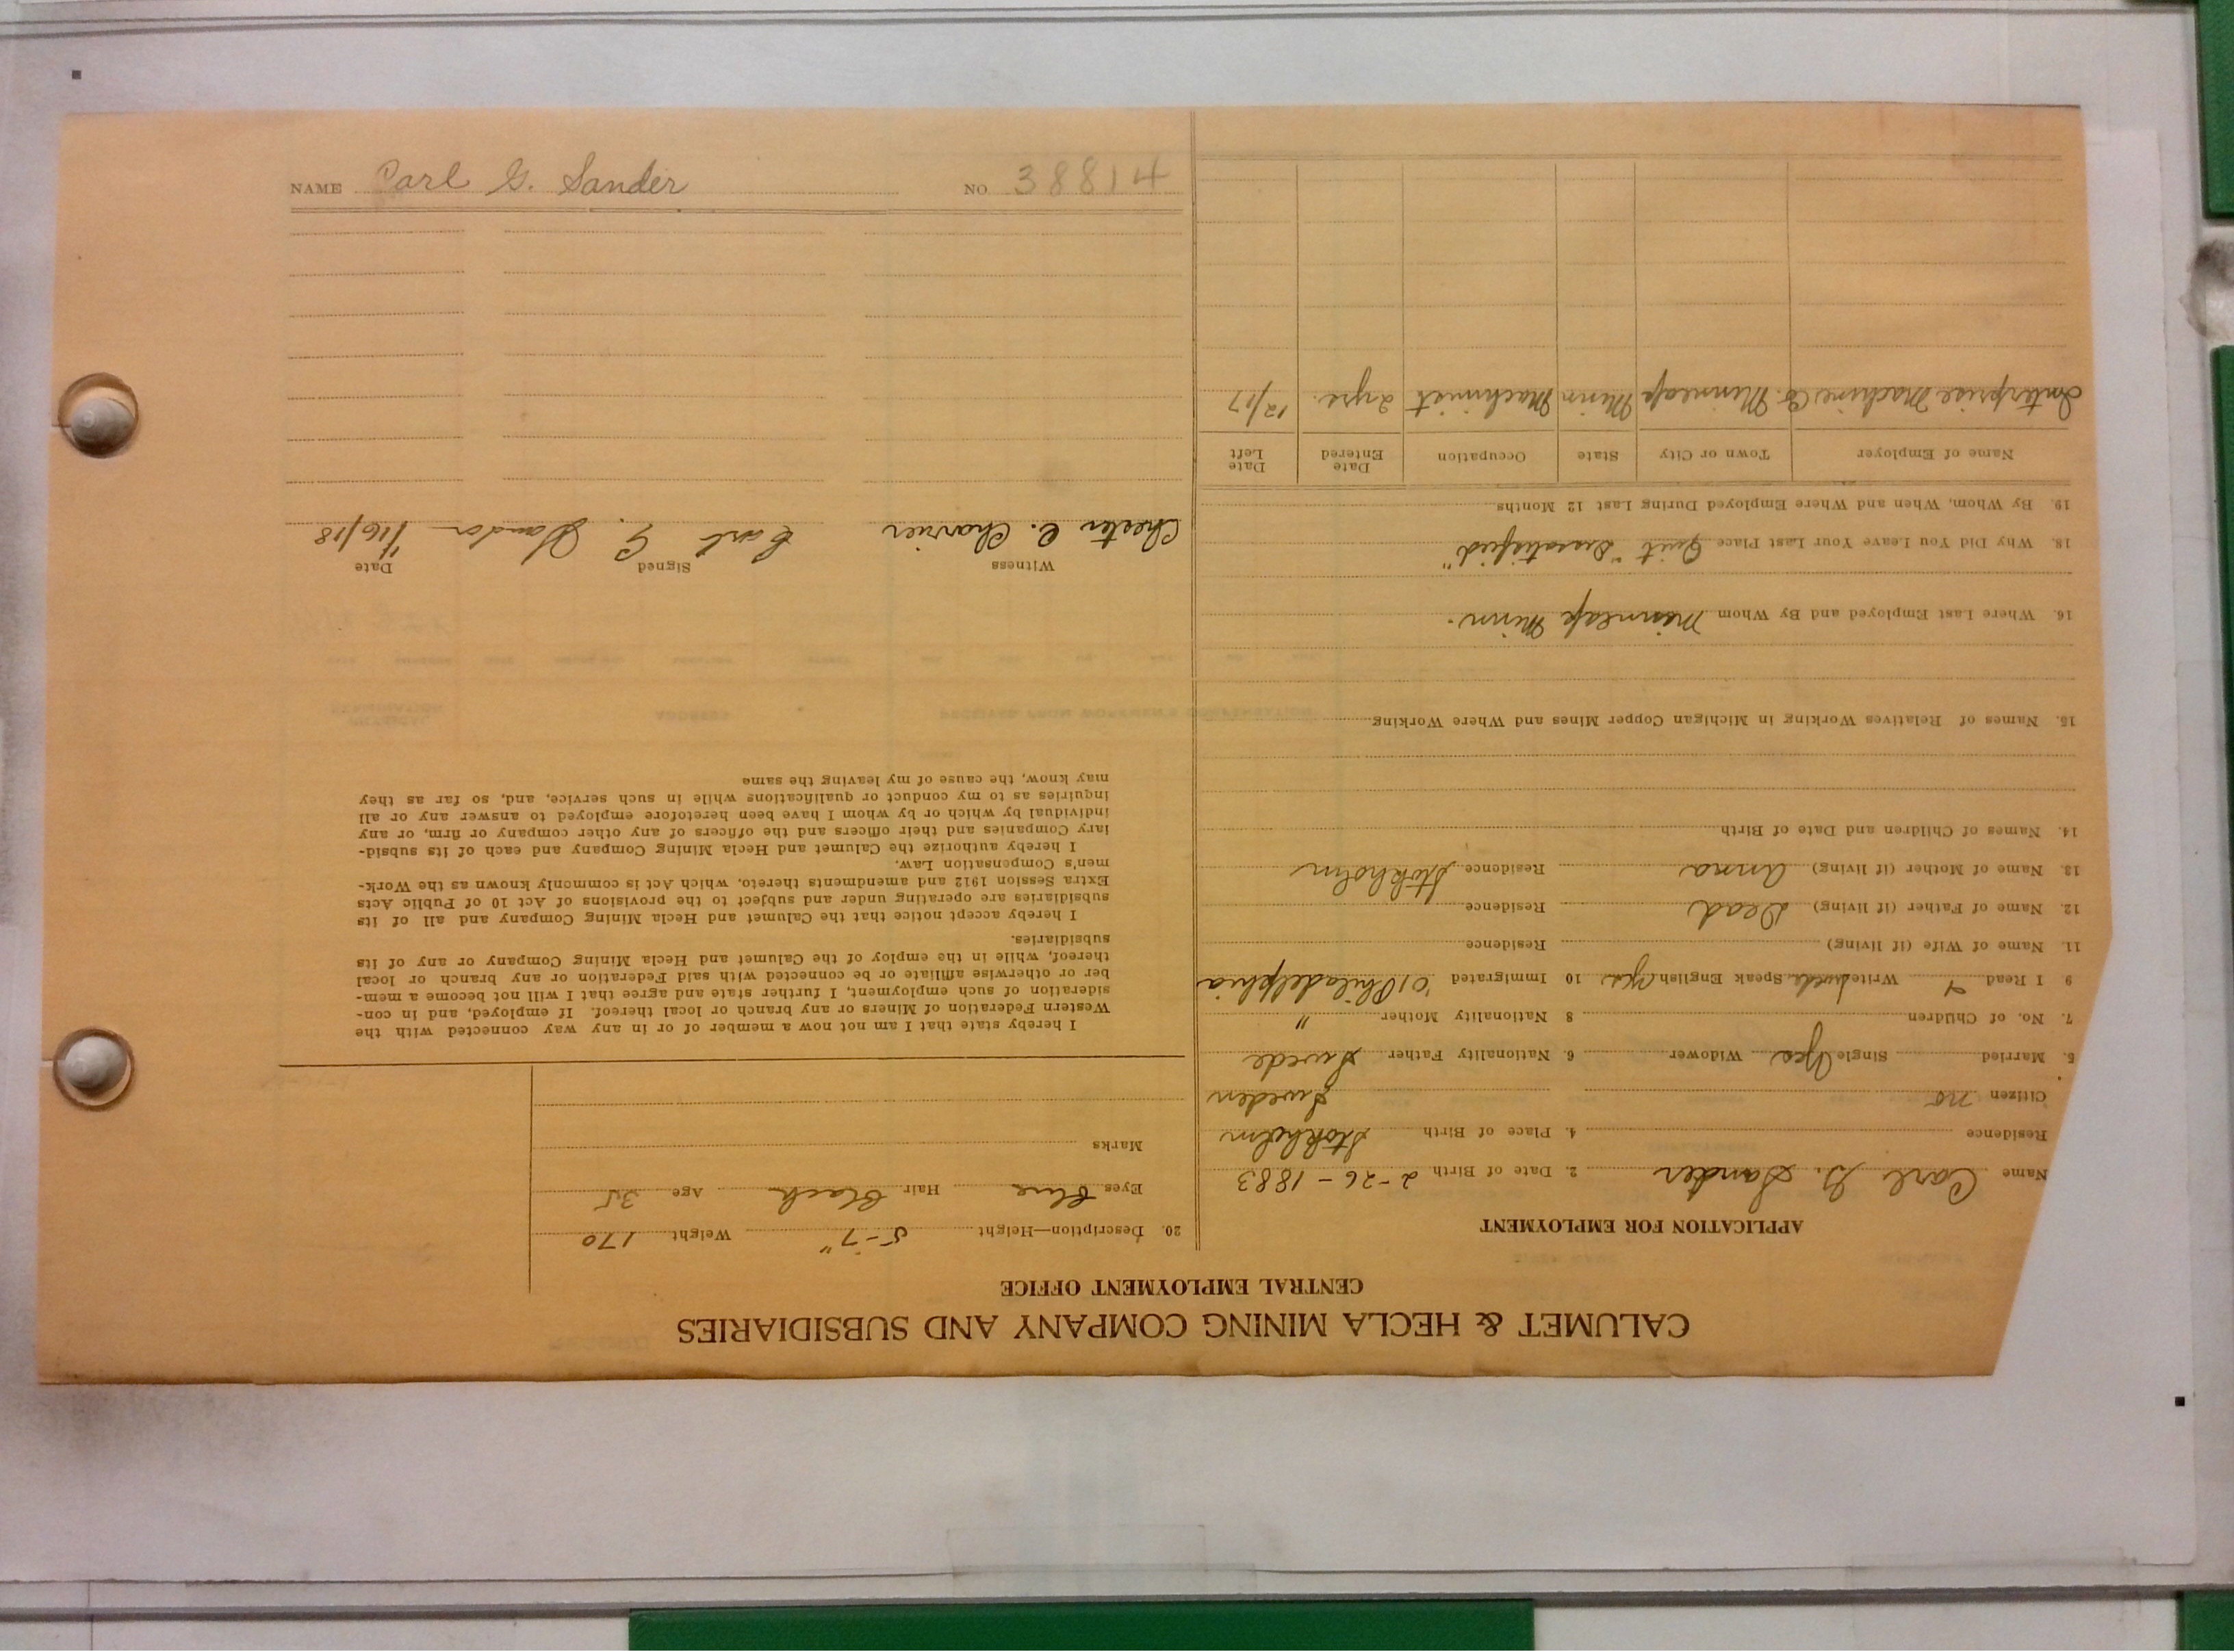 CALUMET & HECLA MINING COMPANY AND SUBSIDIARIES
CENTRAL EMPLOYMENT OFFICE
APPLICATION FOR EMPLOYMENT
Name Carl G. Sander 2. Date of Birth 2-26-1883
Residence 4. Place of Birth Stokholm
Citizen no Sweden
5. Married Single Yes Widower 6. Nationality Father Swede
7. No. of Children 8 Nationality Mother "
9 I Read Write Speak English Yes 10 Immigrated '01 Philadelphia
11. Name of Wife (if living) Residence
12. Name of Father (if living) Dead Residence
13. Name of Mother (if living) Anna Residence Stokholm
14. Names of Children and Date of Birth
15. Names of Relatives Working in Michigan Copper Mines and Where Working
16. Where Last Employed and By Whom Minneap Minn.
18. Why Did You Leave Your Last Place Quit "Dissatisfied"
19. By Whom, When and Where Employed During Last 12 Months
Name of Employer Town or City State Occupation Date Entered Date Left
Enterprise Machine Co. Minneap Minn Machinist 2 yrs. 12/17
20. Description—Height 5-7" Weight 170
Eyes Blue Hair Black Age 35
Marks
I hereby state that I am not now a member of or in any way connected with the
Western Federation of Miners or any branch or local thereof. If employed, and in con-
sideration of such employment, I further state and agree that I will not become a mem-
ber or otherwise affiliate or be connected with said Federation or any branch or local
thereof, while in the employ of the Calumet and Hecla Mining Company or any of its
subsidiaries.
I hereby accept notice that the Calumet and Hecla Mining Company and all of its
subsidiaries are operating under and subject to the provisions of Act 10 of Public Acts
Extra Session 1912 and amendments thereto, which Act is commonly known as the Work-
men's Compensation Law.
I hereby authorize the Calumet and Hecla Mining Company and each of its subsid-
iary Companies and their officers and the officers of any other company or firm, or any
individual by which or by whom I have been heretofore employed to answer any or all
inquiries as to my conduct or qualifications while in such service, and, so far as they
may know, the cause of my leaving the same
Witness Signed Date
Chester C. Charrier Carl G. Sander 1/16/18
NAME Carl G. Sander NO 38814